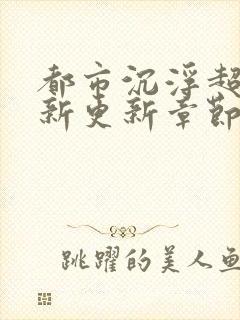 都市沉浮超
新更新章节
跳跃的美人鱼